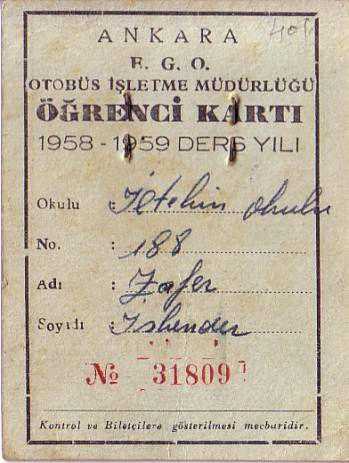 ANKARA
E. G. O.
OTOBÜS İŞLETME MÜDÜRLÜĞÜ
ÖĞRENCİ KARTI
1958 - 1959 DERS YILI
Okulu : İltekin okulu
No. : 188
Adı : Zafer
Soyadı : İskender
№ 31809
Kontrol ve Biletçilere gösterilmesi mecburidir.